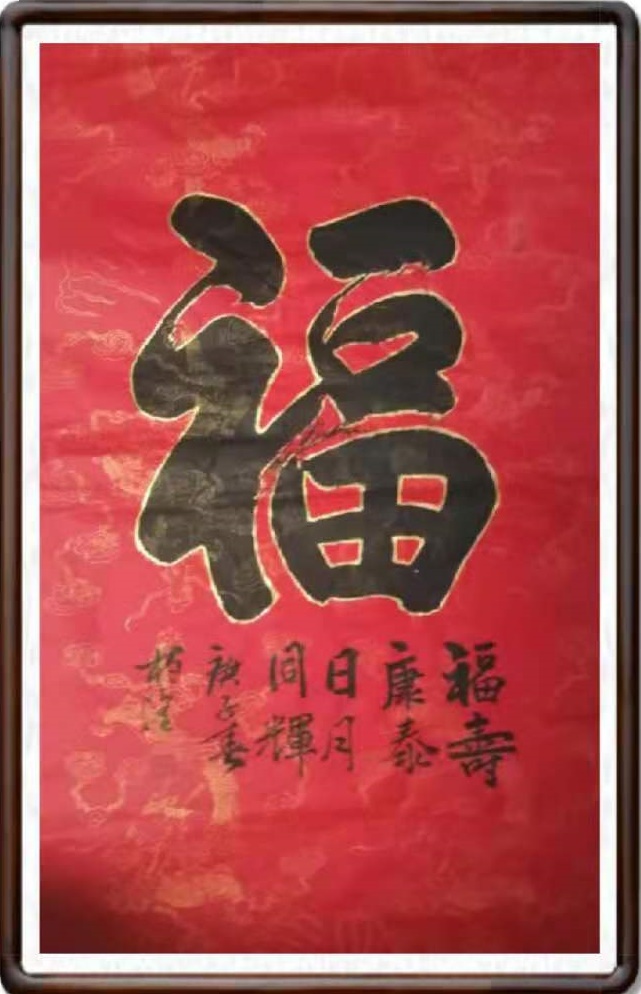 福
福壽
康泰
日月
同輝
庚子春